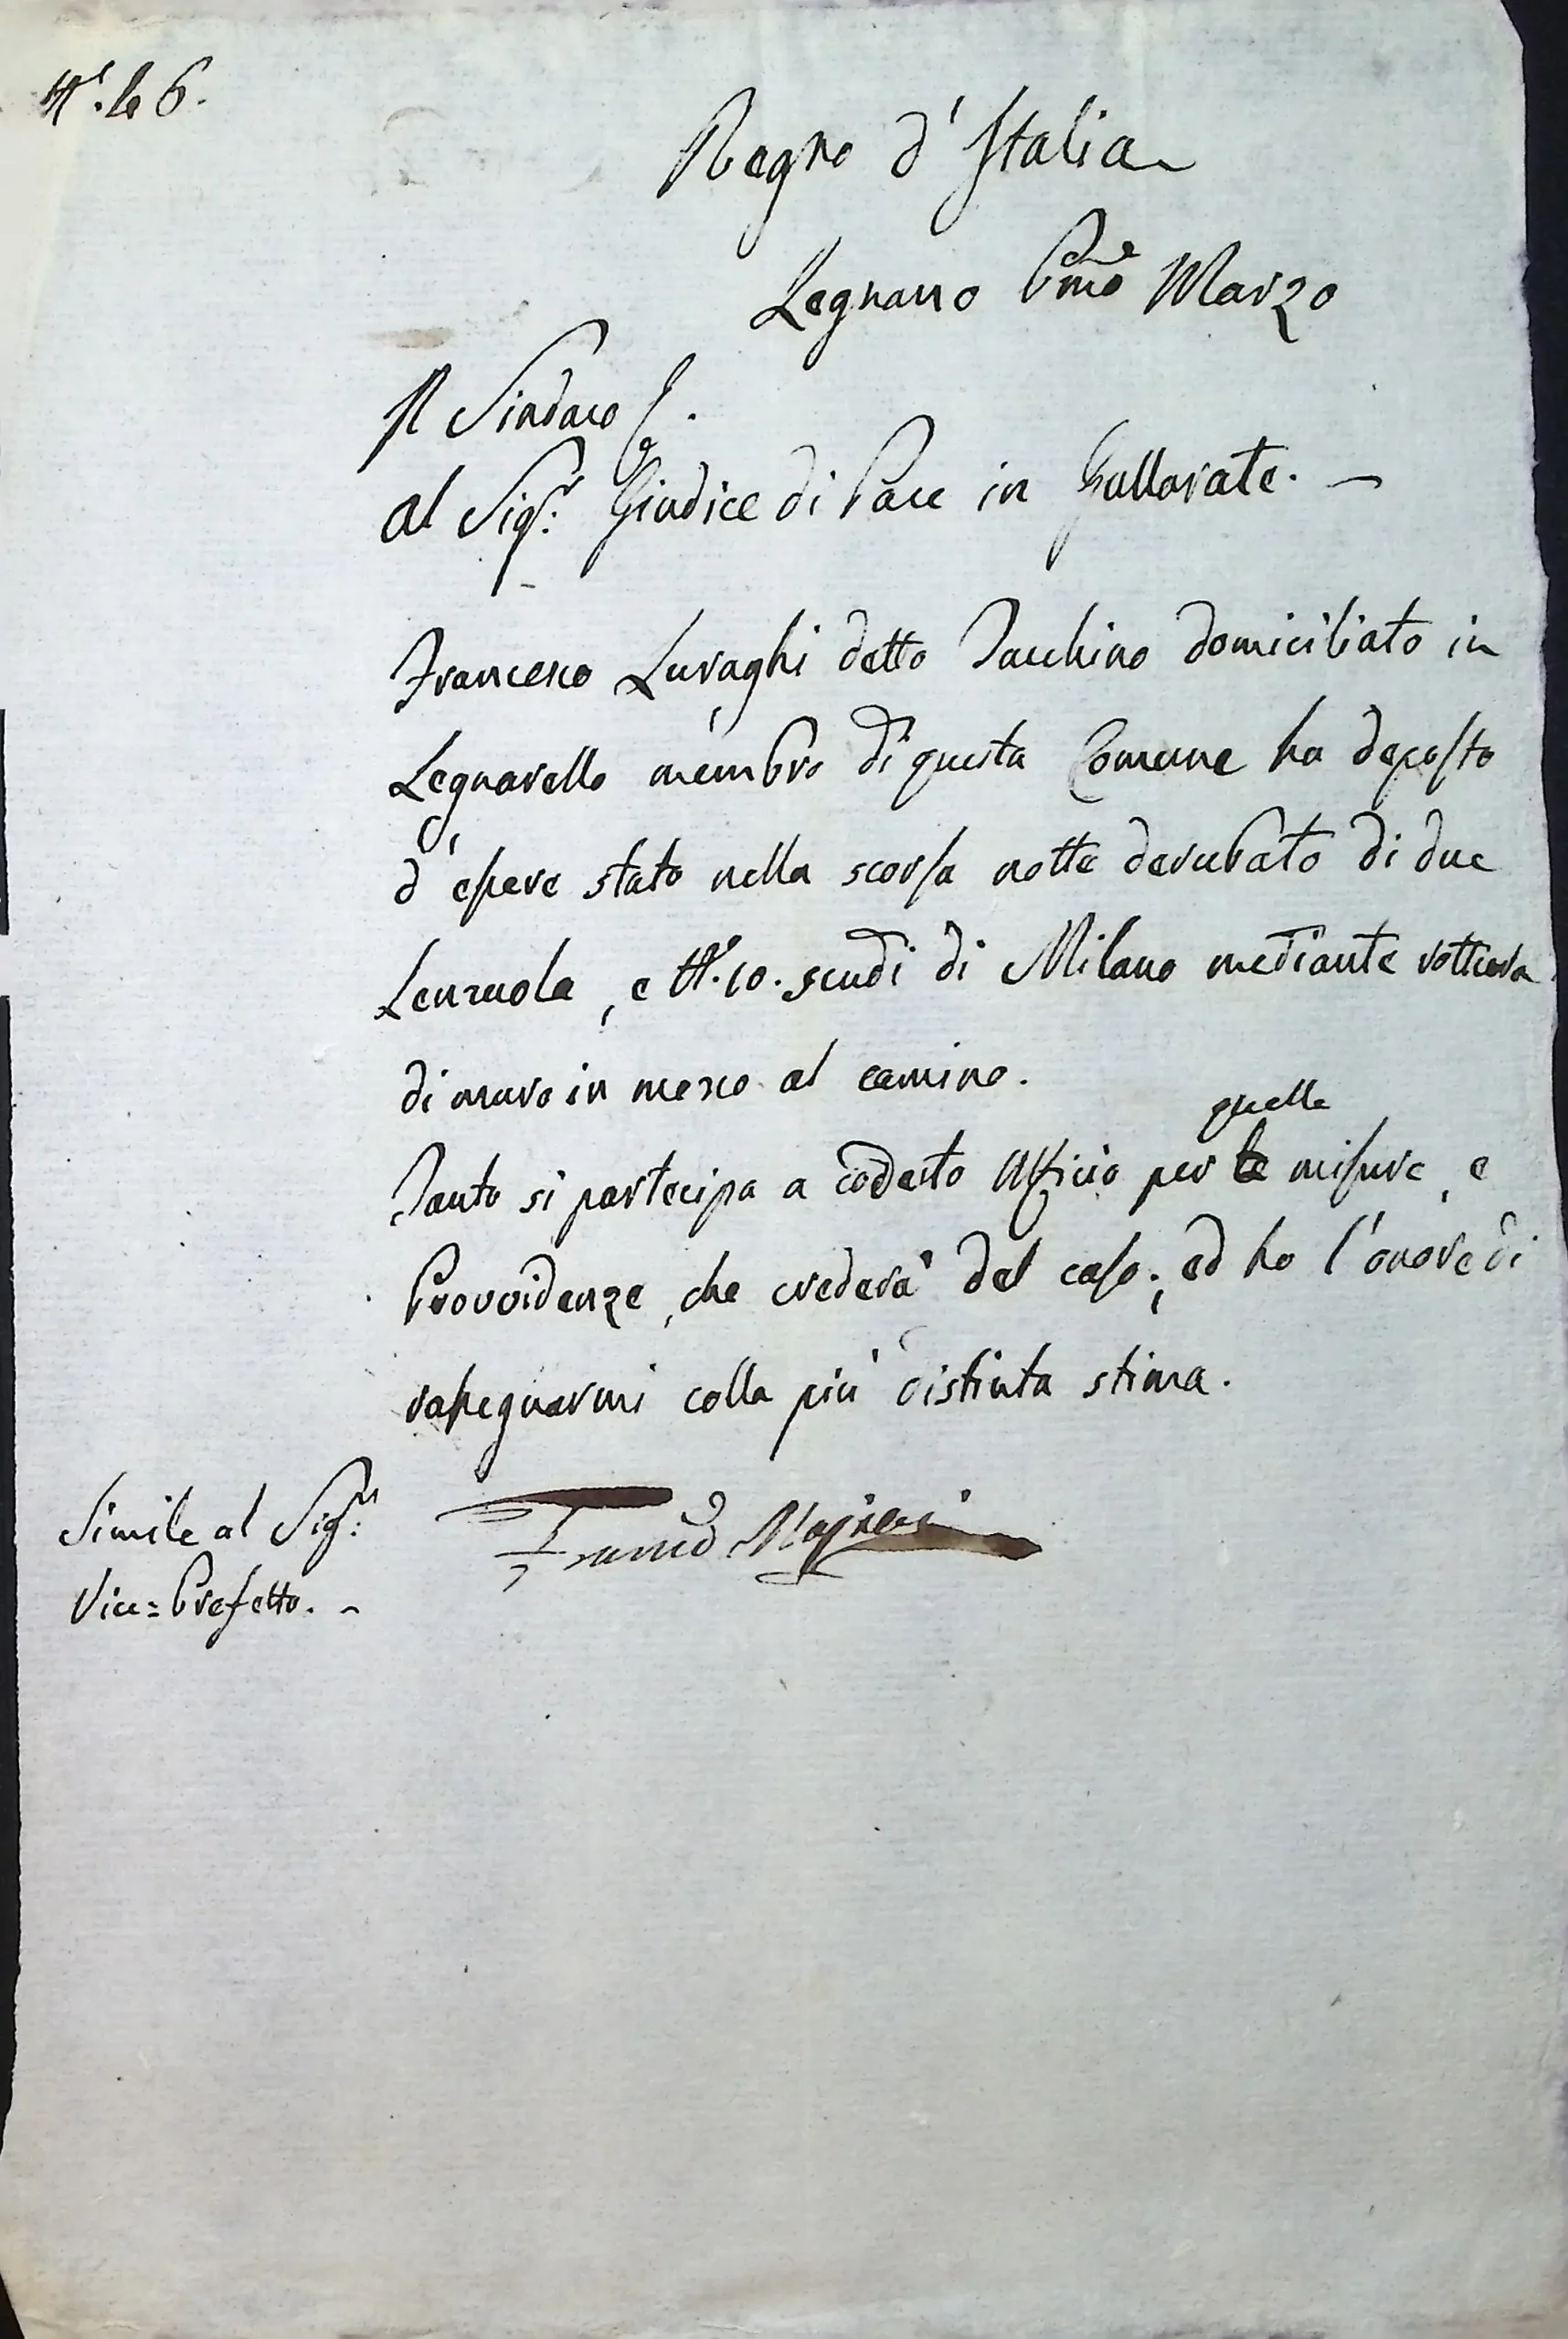 N.° 46.
Regno d'Italia
Legnano Pmo Marzo
Il Sindaco
al Sigr: Giudice di Pace in Gallarate. —
Francesco Luraghi detto Tacchino domiciliato in
Legnarello membro di questa Comune ha deposto
d'essere stato nella scorsa notte derubato di due
Lenzuola, e N.° 10. scudi di Milano mediante rottura
di muro in mezzo al camino.
quelle
Tanto si partecipa a codesto Ufficio per le misure, e
Provvidenze, che crederà del caso; ed ho l'onore di
rassegnarmi colla più distinta stima.
Simile al Sigr:
Vice=Prefetto. -